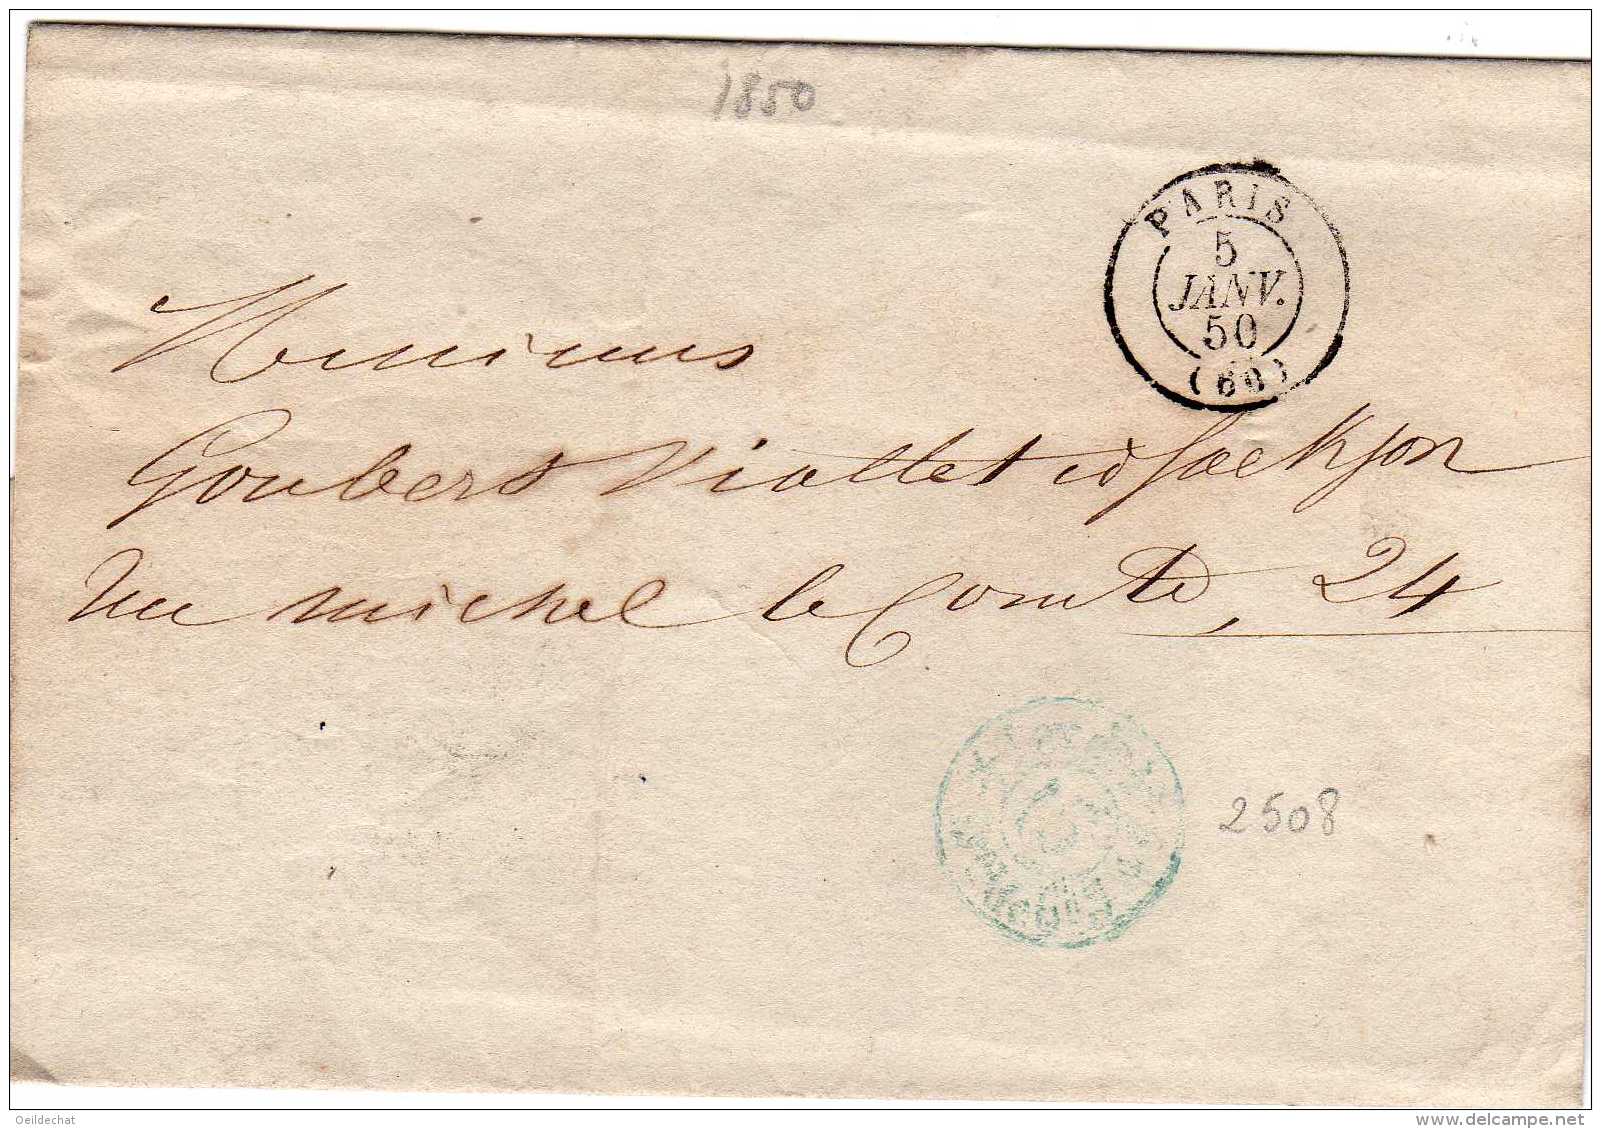 1850
PARIS
5
JANV.
50
(60)
Messieurs
Goubert Viallet et Jackson
rue michel le Comte, 24
2508
Oeildechat
www.delcampe.net